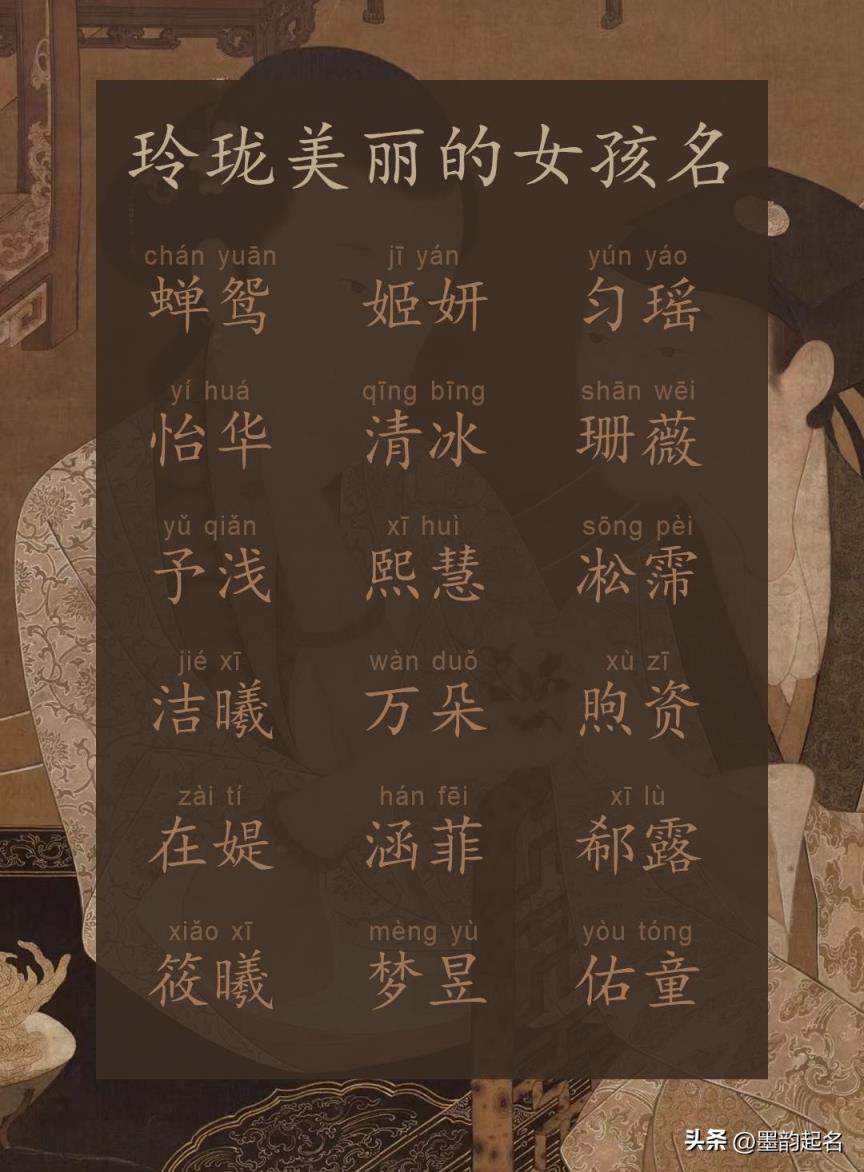 玲珑美丽的女孩名
chán yuān jī yán yún yáo
蝉鸳 姬妍 匀瑶
yí huá qīng bīng shān wēi
怡华 清冰 珊薇
yǔ qiǎn xī huì sōng pèi
予浅 熙慧 凇霈
jié xī wàn duǒ xù zī
洁曦 万朵 煦资
zài tí hán fēi xī lù
在媞 涵菲 郗露
xiǎo xī mèng yù yòu tóng
筱曦 梦昱 佑童
头条 @墨韵起名